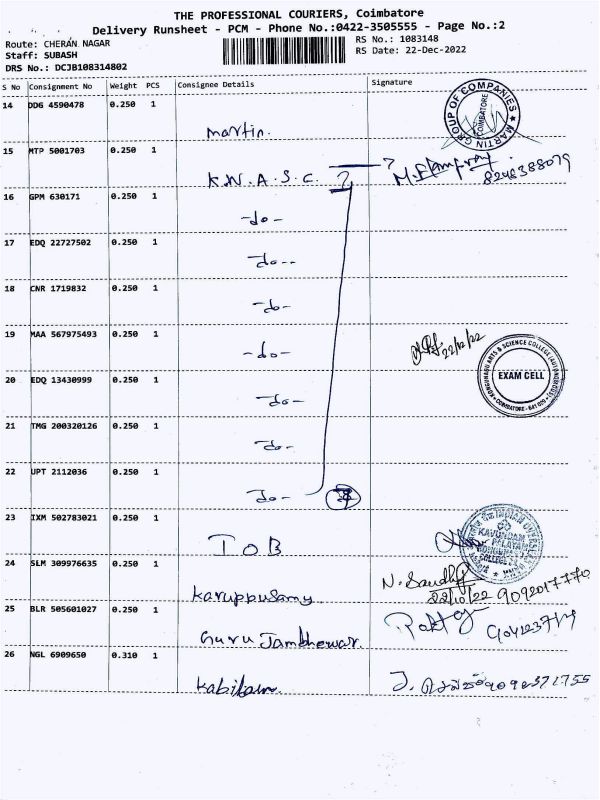 THE PROFESSIONAL COURIERS, Coimbatore
Delivery Runsheet - PCM - Phone No.:0422-3505555 - Page No.:2
Route: CHERAN NAGAR
RS No.: 1083148
Staff: SUBASH
RS Date: 22-Dec-2022
DRS No.: DCJB108314802
S No Consignment No Weight PCS Consignee Details Signature
14 DDG 4590478 0.250 1
Martin.
MARTIN GROUP OF COMPANIES COIMBATORE
15 MTP 5001703 0.250 1
K.N.A.S.C. 7
8248388079
16 GPM 630171 0.250 1
-do-
17 EDQ 22727502 0.250 1
-do--
18 CNR 1719832 0.250 1
-do-
19 MAA 567975493 0.250 1
-do-
22/12/22
KONGUNADU ARTS & SCIENCE COLLEGE (AUTONOMOUS)
EXAM CELL
COIMBATORE - 641 029
20 EDQ 13430999 0.250 1
-do-
21 TMG 200320126 0.250 1
-do-
22 UPT 2112036 0.250 1
-do-
23 IXM 502783021 0.250 1
IOB
KAVUNDAM
PALAYAM
KONGUNADU
COLLEGE
24 SLM 309976635 0.250 1
Karuppusamy
N. Sandhya
22/10/22 9092017770
25 BLR 505601027 0.250 1
Guru Jambhewar.
26 NGL 6909650 0.310 1
Kabilan.